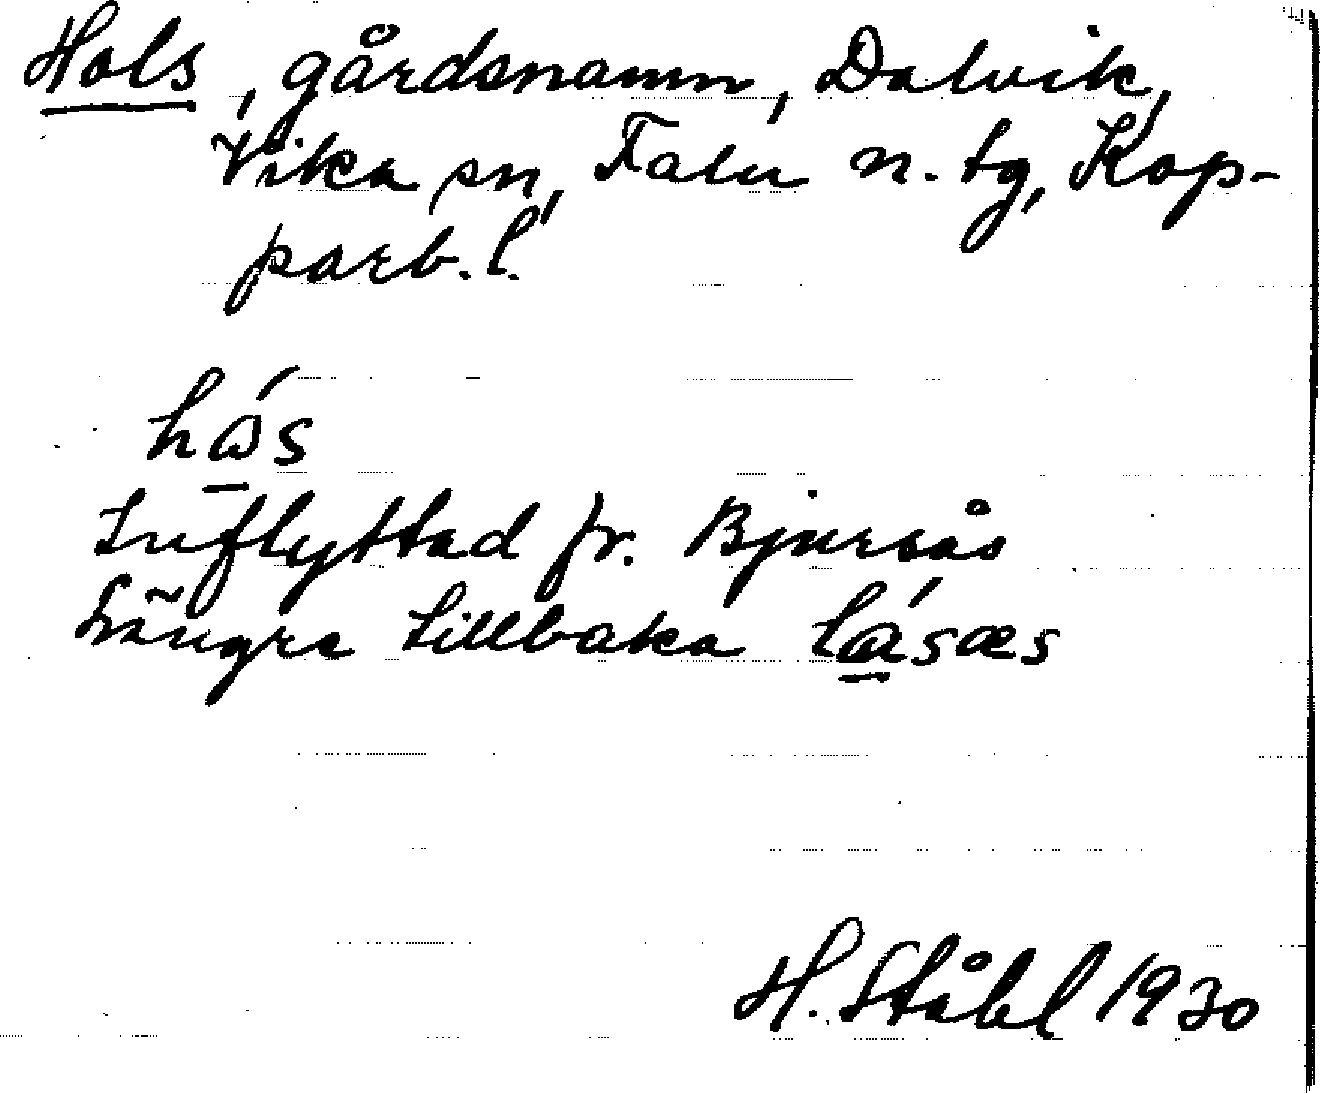 Hols, gårdsnamn, Dalvik,
Vika sn, Falu n. tg, Kop-
parb. l.
hás
Inflyttad fr. Bjursås
Längre tillbaka lásæs
H. Ståhl 1930